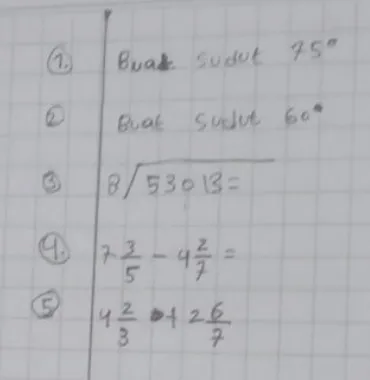 1. Buat sudut 75°
2 Buat sudut 60°
3 8/53013=
4. 7 3/5 - 4 2/7 =
5 4 2/3 + 2 6/7